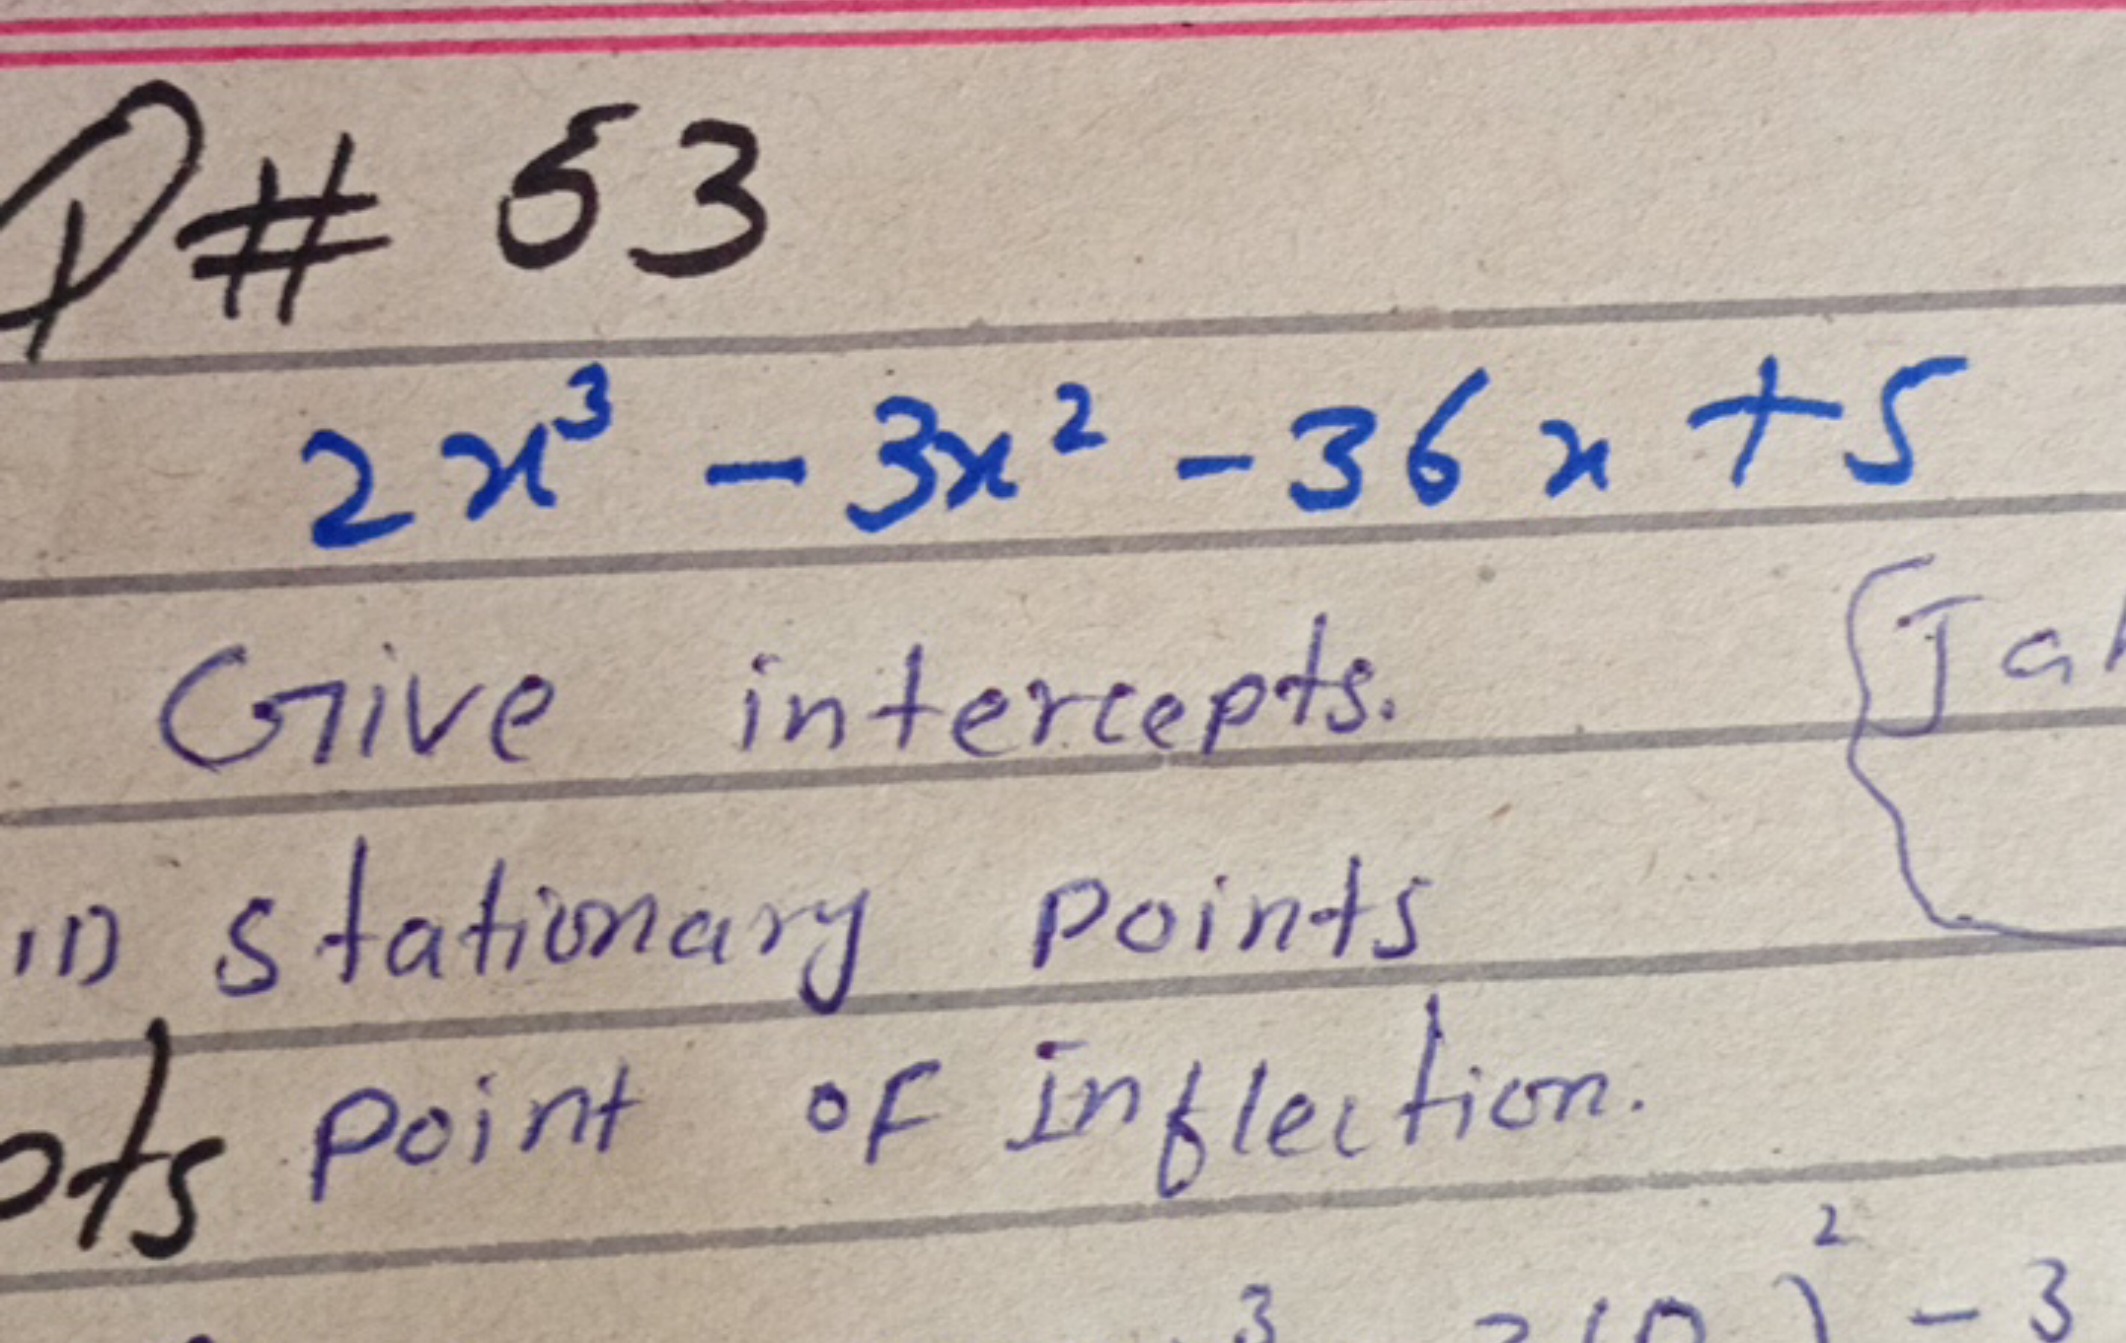 P# 53
2x³ - 3x² - 36x + 5
Give intercepts.
ii) stationary points
point of inflection.
² - 3